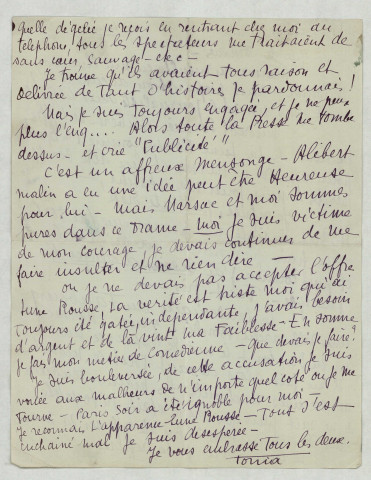 Quelle dégelée je reçois en rentrant chez moi au
téléphone, tous les spectateurs me traitaient de
sans cœur, sauvage - etc -
Je trouve qu'ils avaient tous raison et
délivrée de tant d'histoire je pardonnais !
Mais je suis toujours engagée, et je ne peux
plus l'eng.... Alors toute la Presse me tombe
dessus - et crie "Publicité"
C'est un affreux mensonge - Alibert
malin a eu une idée peut être heureuse
pour lui - mais Marsac et moi sommes
pures dans ce Drame - moi je suis victime
de mon courage, je devais continuer de me
faire insulter et ne rien dire -
ou je ne devais pas accepter l'offre
Lune Rousse, La verité est triste moi qui ai
toujours été gatée, indépendante, j'avais besoin
d'argent et de là vint ma Faiblesse - En somme
je fais mon metier de Comedienne - que devais je faire ?
Je suis bouleversée, de cette accusation, je suis
vouée aux malheurs de n'importe quel coté ou je me
tourne - Paris Soir a été ignoble pour moi -
Je reconnais L'apparence - Lune Rousse - Tout s'est
enchainé mal je suis desesperée -
Je vous embrasse tous les deux.
Tonia